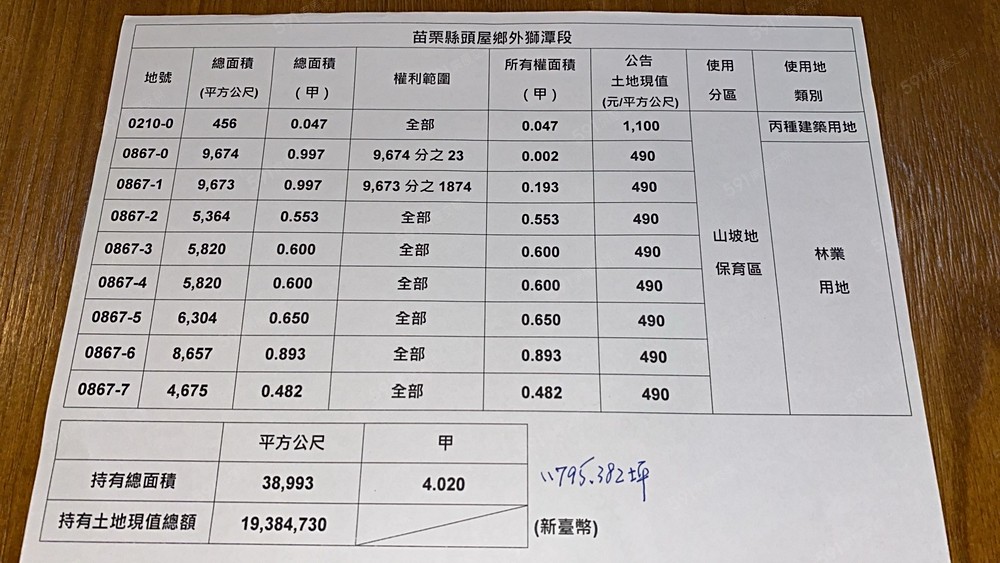 苗栗縣頭屋鄉外獅潭段
地號 總面積 (平方公尺) 總面積 (甲) 權利範圍 所有權面積 (甲) 公告 土地現值 (元/平方公尺) 使用 分區 使用地 類別
0210-0 456 0.047 全部 0.047 1,100 丙種建築用地
0867-0 9,674 0.997 9,674 分之 23 0.002 490
0867-1 9,673 0.997 9,673 分之 1874 0.193 490
0867-2 5,364 0.553 全部 0.553 490
0867-3 5,820 0.600 全部 0.600 490
山坡地 保育區
林業 用地
0867-4 5,820 0.600 全部 0.600 490
0867-5 6,304 0.650 全部 0.650 490
0867-6 8,657 0.893 全部 0.893 490
0867-7 4,675 0.482 全部 0.482 490
平方公尺 甲
持有總面積 38,993 4.020
11795.382坪
持有土地現值總額 19,384,730
(新臺幣)